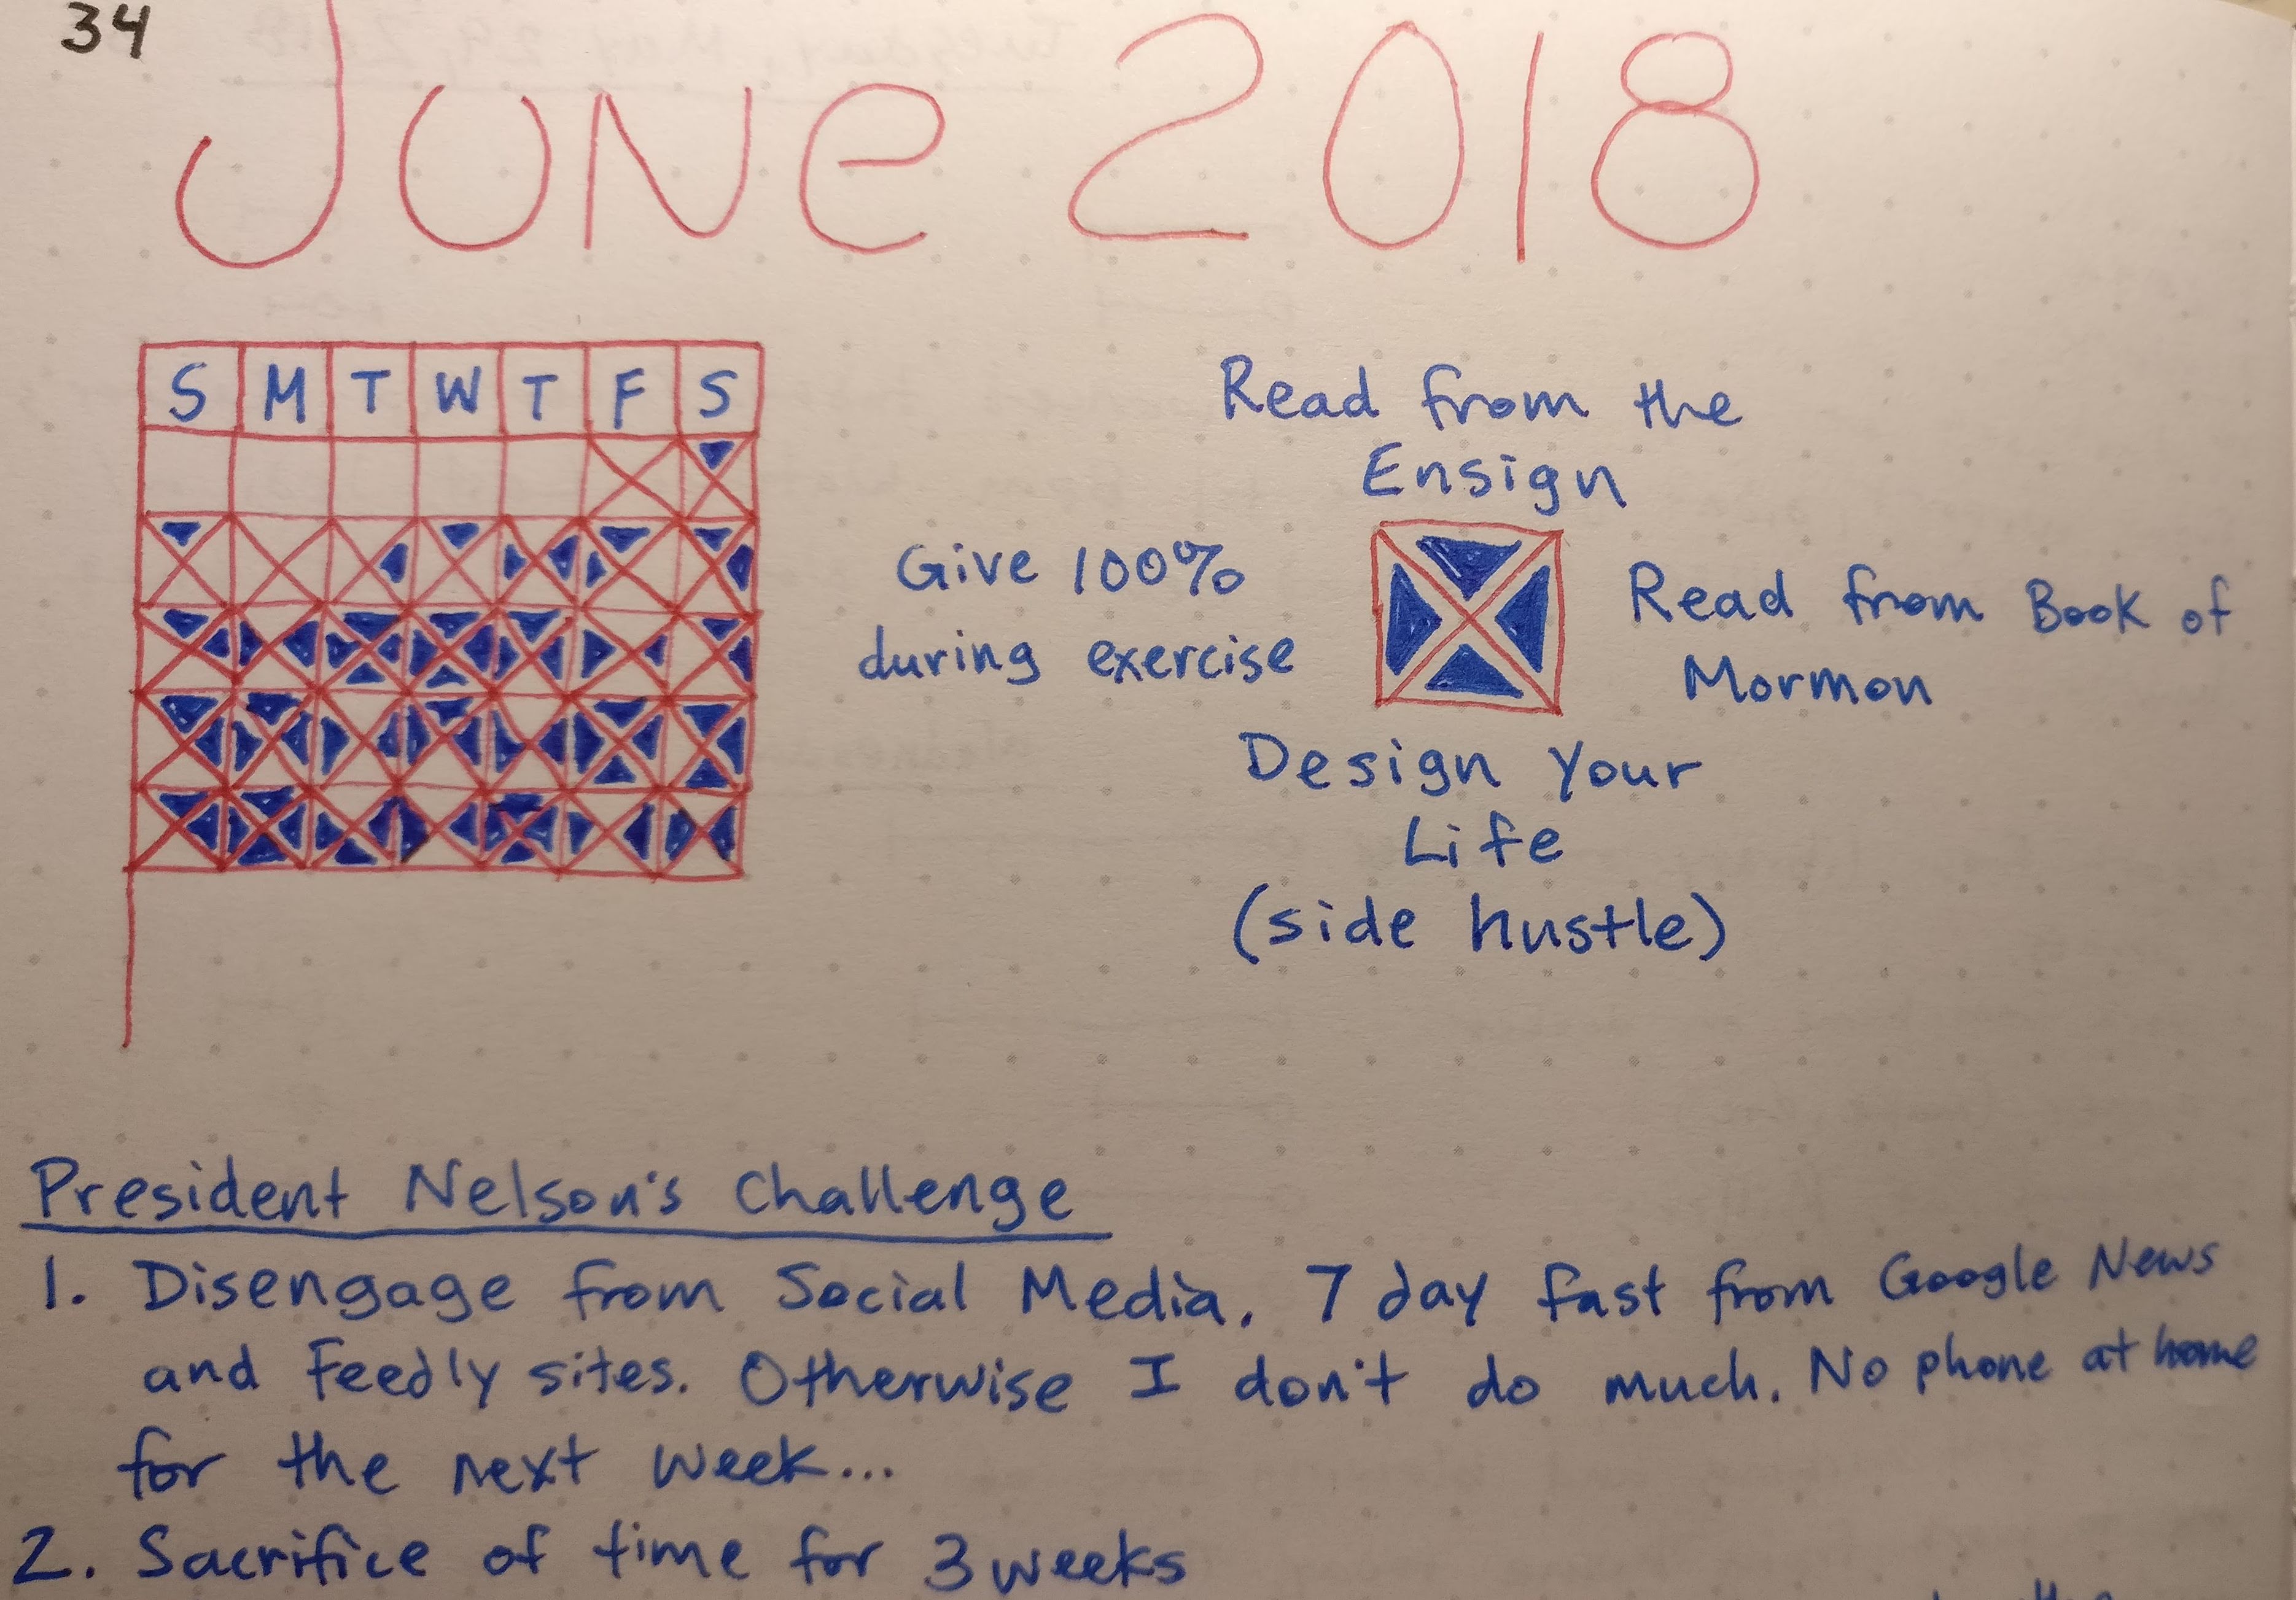 34
June 2018
S M T W T F S
Read from the
Ensign
Give 100%
during exercise
Read from Book of
Mormon
Design Your
Life
(side hustle)
President Nelson's Challenge
1. Disengage from Social Media. 7 day fast from Google News
and Feedly sites. Otherwise I don't do much. No phone at home
for the next week...
2. Sacrifice of time for 3 weeks